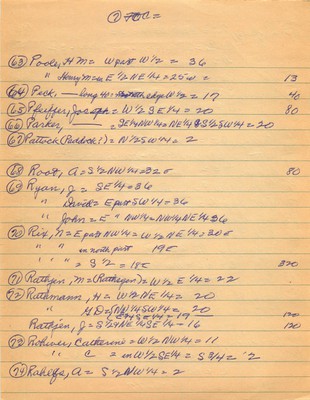 (63) Poole, H M = W part W 1/2 = 36
" Henry M = E 1/2 NE 1/4 = 25 = 13
(64) Peck, — long 40 W 1/2 = 17 40
(65) Pfeiffer, Joseph = W 1/2 SE 1/4 = 20 80
(66) Parker, — = SE 1/4 NW 1/4 = NE 1/4 & S 1/2 SW 1/4 = 20
(67) Pattock (Purdock?) = N 1/2 SW 1/4 = 2
(68) Root, A = S 1/2 NW 1/4 = 32 80
(69) Ryan, J = SE 1/4 = 36
" David = E part SW 1/4 = 36
" John = E " NW 1/4 = NW 1/4 NE 1/4 36
(70) Rix, N = E part NW 1/4 = W 1/2 NE 1/4 = 30
" " " in north part 19
" " = S 1/2 = 18 320
(71) Rathjen, M = (Rathyen) = W 1/2 E 1/4 = 22
(72) Rathmann, H = W 1/2 NE 1/4 = 20
" G D = S 1/2 NW 1/4 = 20
SE 1/4 = 19 120
Rathjen, J = S 1/2 NE 1/4 SE 1/4 = 16 120
(73) Rohwer, Catherine = W 1/2 NW 1/4 = 11
" C = in W 1/2 SE 1/4 = S 3/4 = 2
(74) Rohelfs, A = S 1/2 NW 1/4 = 2